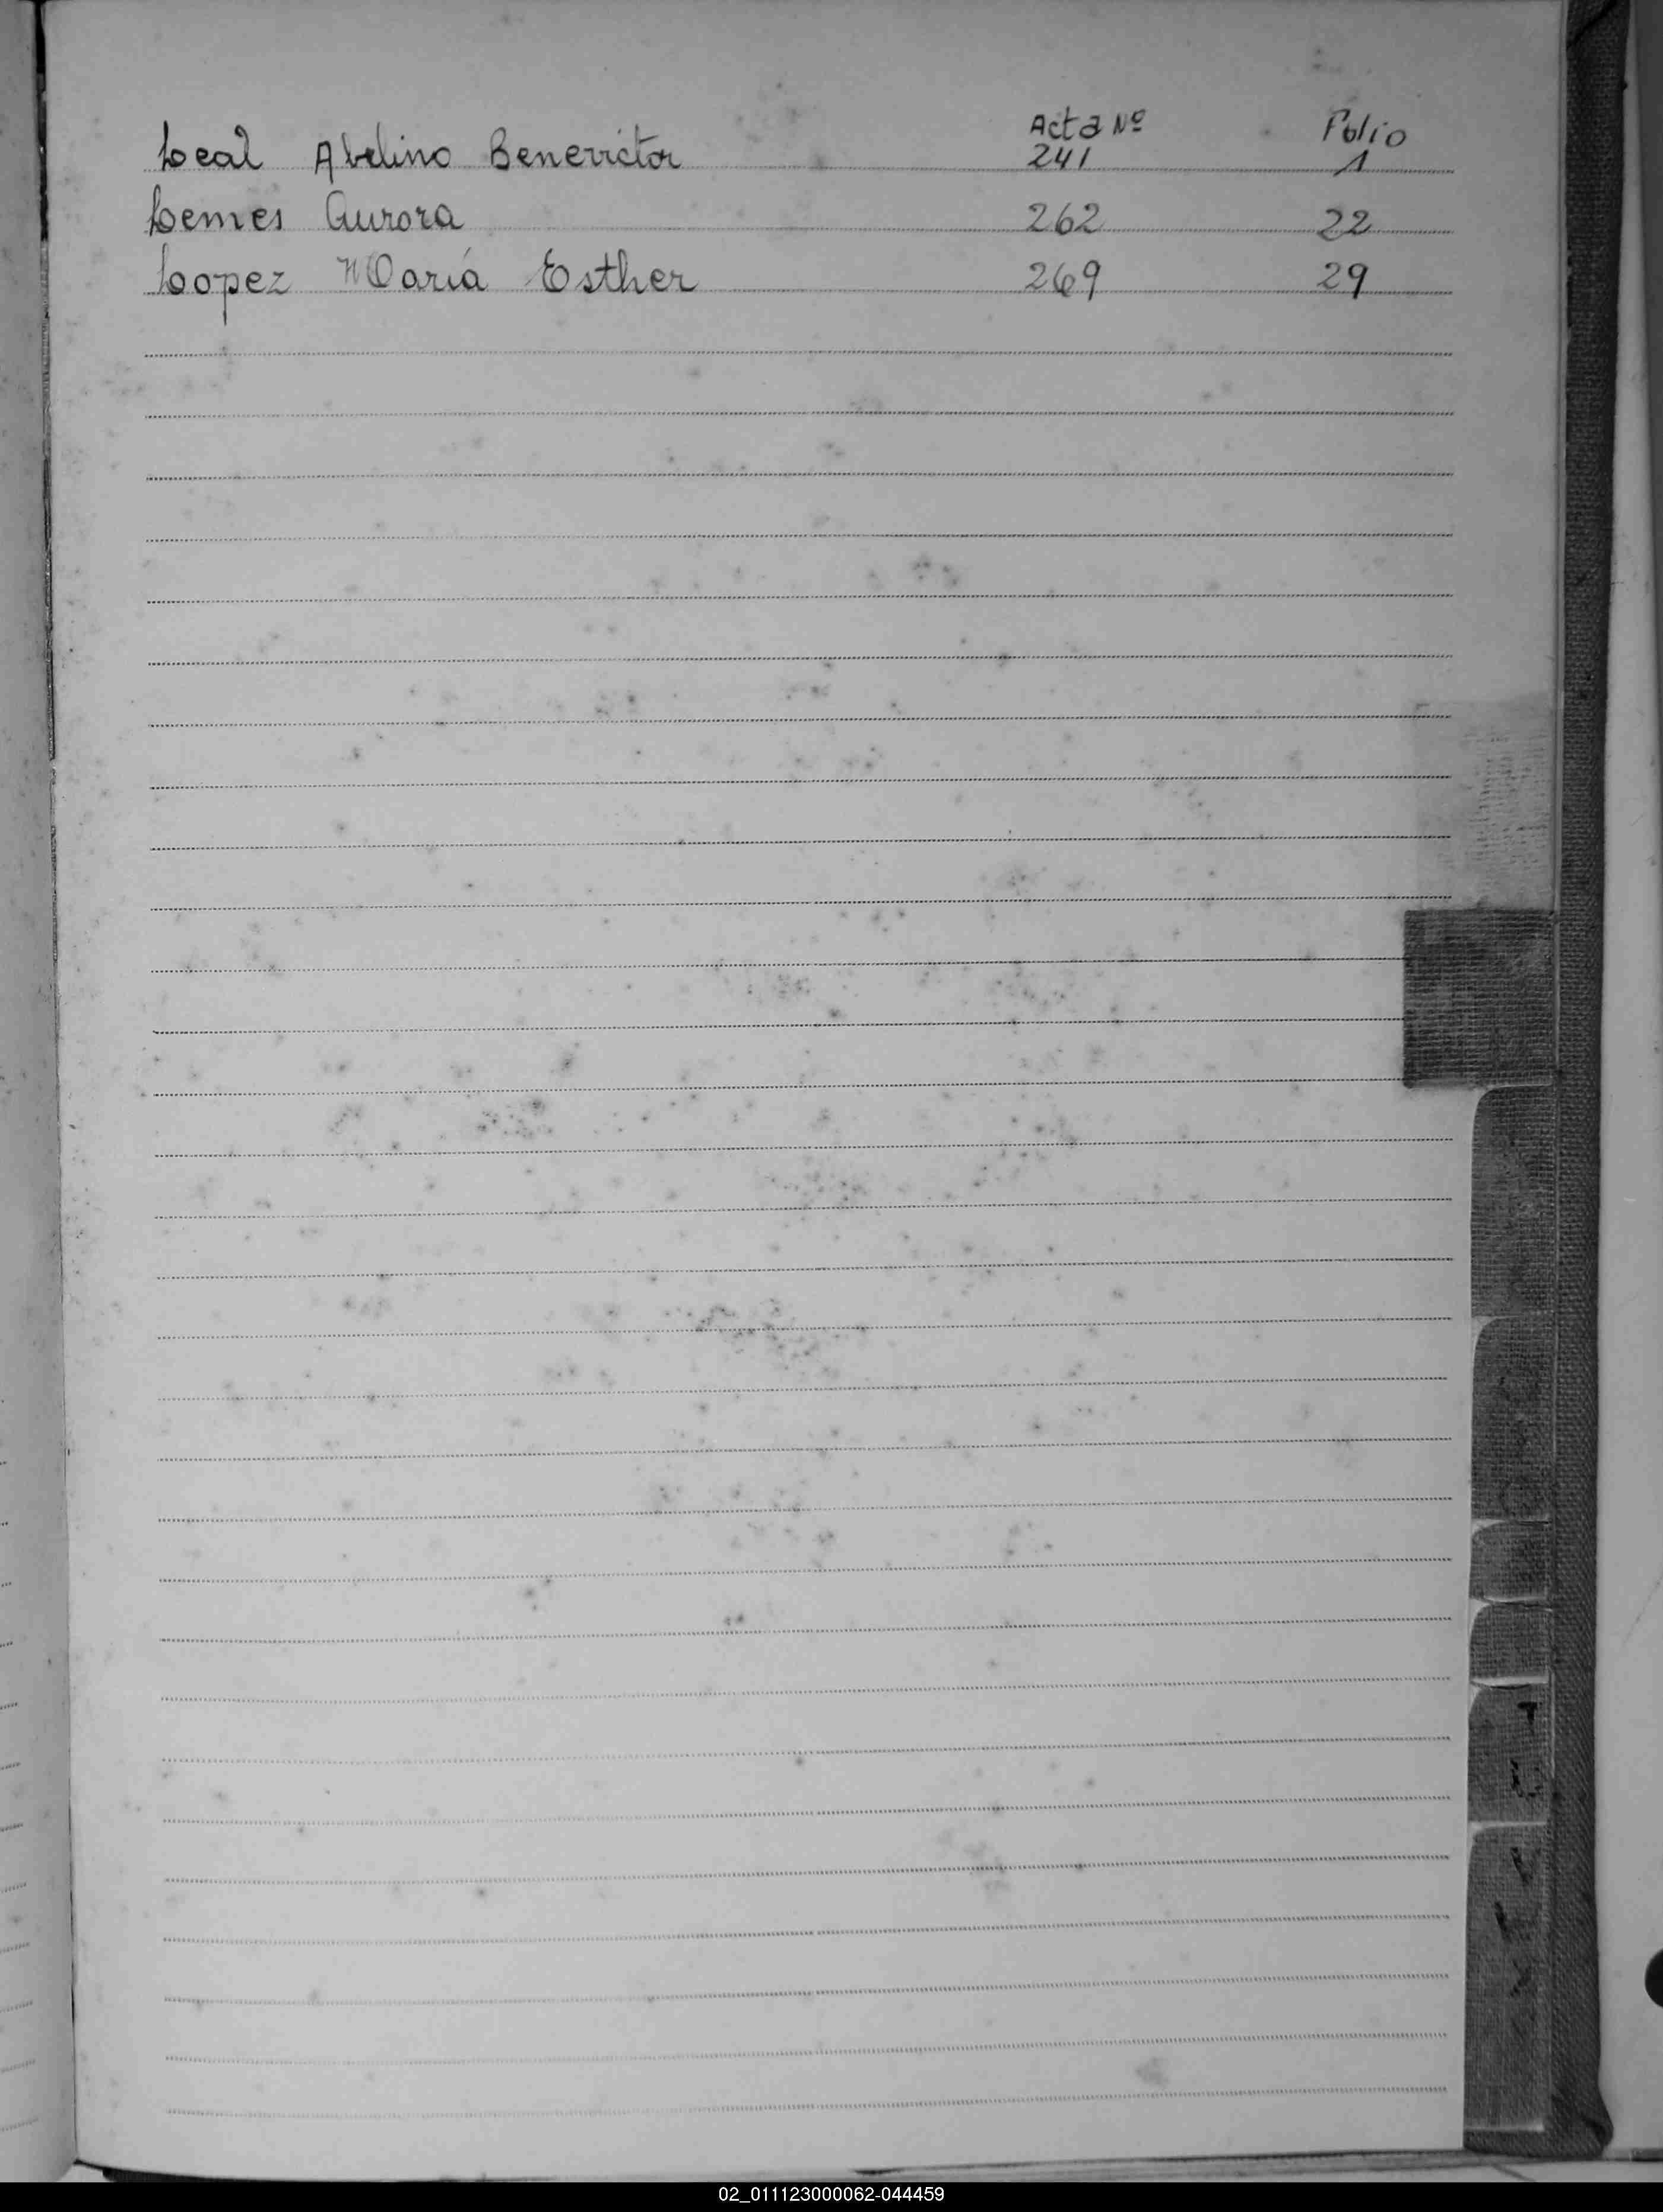 Acta Nº Folio
Leal Abelino Benevictor 241 1
Lemes Aurora 262 22
Lopez Maria Esther 269 29
02_011123000062-044459